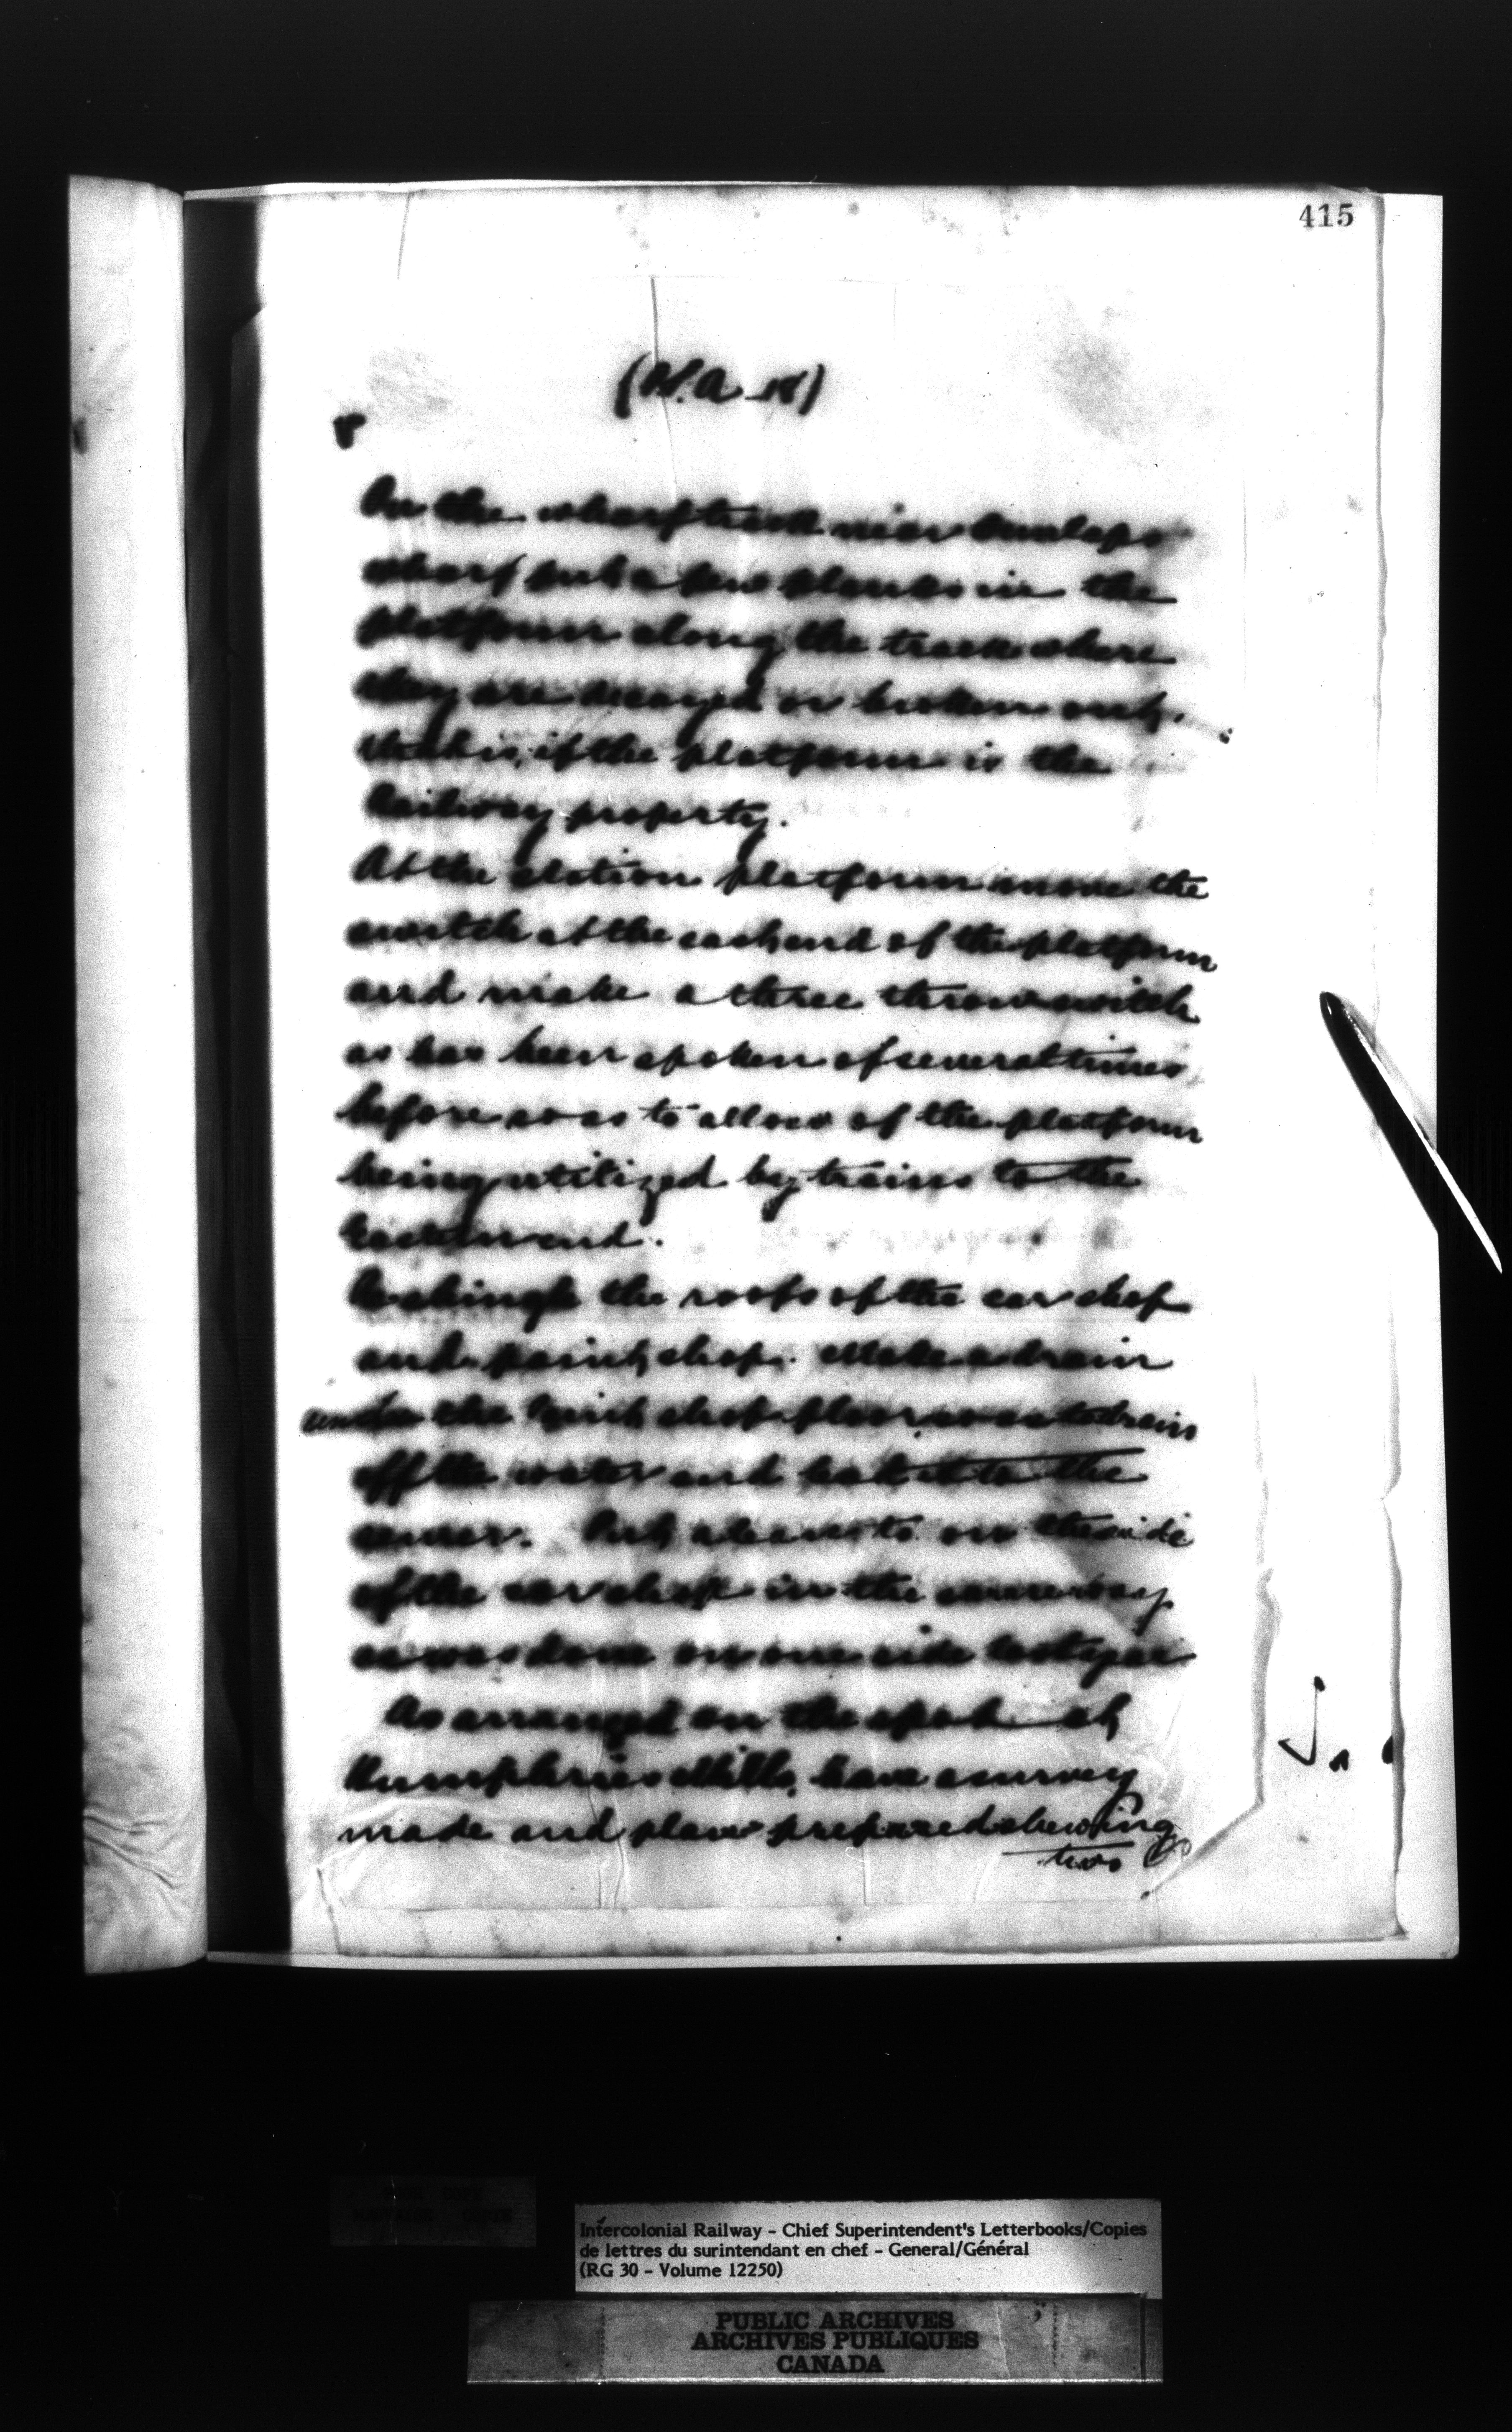 415
(P.A - 18)
8
On the wharf track near Dunlaps
wharf put a few planks in the
platform along the track where
they are decayed or broken only,
that is, if the platform is the
Railway property.
At the station platform move the
switch at the east end of the platform
and make a three throw switch
as has been spoken of several times
before so as to allow of the platform
being utilized by trains to the
Eastern end.
Reshingle the roofs of the car shop
and paint shop. Make a drain
under the paint shop floor, so as to drain
off the water and lead it to the
sewer. Put cleats on the side
of the car shop in the same way
as was done on one side last year
As arranged on the spot at
Humphries Mills, have a survey
made and plan prepared shewing
two
Intercolonial Railway - Chief Superintendent's Letterbooks/Copies
de lettres du surintendant en chef - General/Général
(RG 30 - Volume 12250)
PUBLIC ARCHIVES
ARCHIVES PUBLIQUES
CANADA